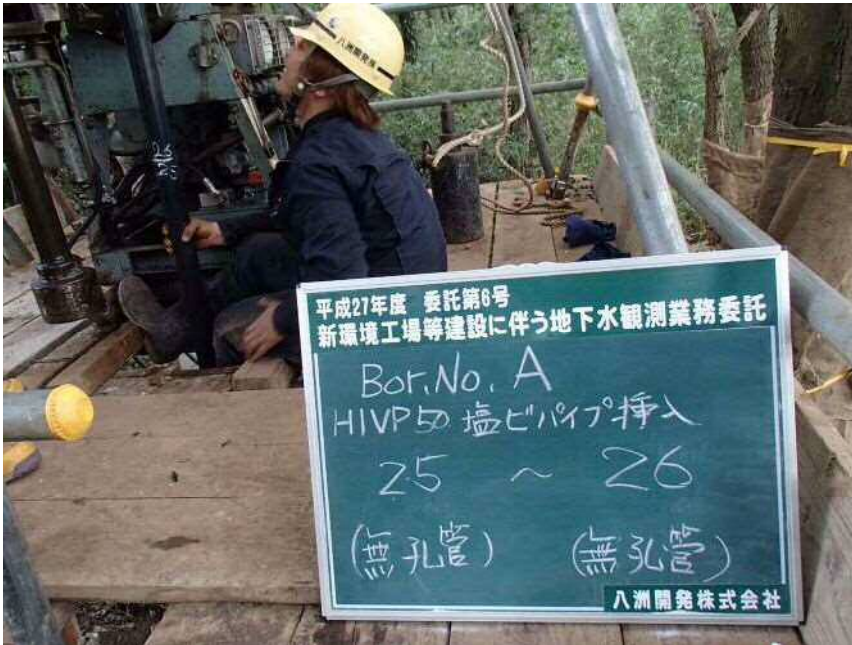 八洲開発㈱
平成27年度 委託第6号
新環境工場等建設に伴う地下水観測業務委託
Bor.No. A
HIVP50 塩ビパイプ挿入
25 ~ 26
(無孔管) (無孔管)
八洲開発株式会社